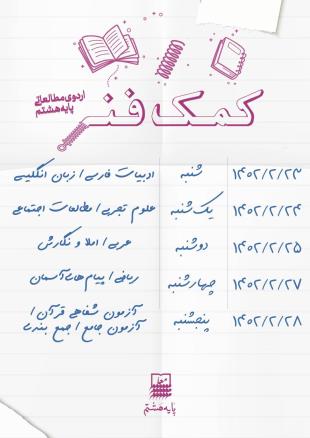 کمک فنر
اردوی مطالعاتی
پایه هشتم
۱۴۰۲/۲/۲۳ شنبه ادبیات فارسی / زبان انگلیسی
۱۴۰۲/۲/۲۴ یک‌شنبه علوم تجربی / مطالعات اجتماعی
۱۴۰۲/۲/۲۵ دوشنبه عربی / املا و نگارش
۱۴۰۲/۲/۲۷ چهارشنبه ریاضی / پیام‌های آسمان
۱۴۰۲/۲/۲۸ پنجشنبه آزمون شفاهی قرآن /
آزمون جامع / جمع بندی
پایه هشتم